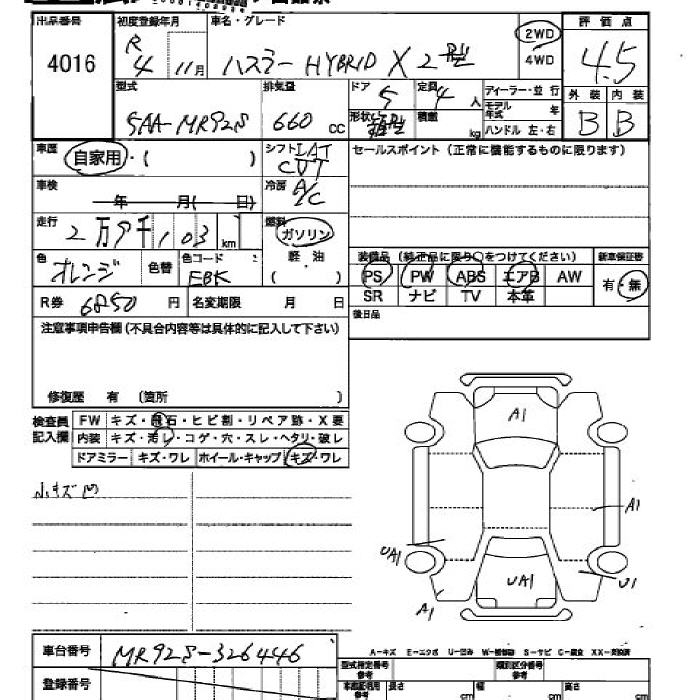 出品番号 初度登録年月 車名・グレード 評価点
4016 R4 11月 ハスラー HYBRID X 2型 2WD 4WD 4.5
型式 排気量 ドア 定員 ディーラー・並行 外装 内装
5AA-MR92S 660cc 5 4人 モデル年式 年 B B
形状 積載 kg ハンドル 左・右
車歴 自家用・( ) シフト LAT CVT セールスポイント(正常に機能するものに限ります)
車検 年 月( 日) 冷房 A/C
走行 2万9千103km 燃料 ガソリン
色 オレンジ 色替 色コード EBK 軽油 ( )
装備品(純正品に限り○をつけてください) 新車保証書
PS PW ABS エアB AW 有・無
SR ナビ TV 本革
R券 6850円 名変期限 月 日
後日品
注意事項申告欄(不具合内容等は具体的に記入して下さい)
修復歴 有 (箇所 )
検査員記入欄 FW キズ・飛石・ヒビ割・リペア跡・X要
内装 キズ・汚レ・コゲ・穴・スレ・ヘタリ・破レ
ドアミラー キズ・ワレ ホイール・キャップ キズ・ワレ
小キズ凹
A1
A1
UA1
UA1
U1
A1
A-キズ E-エクボ U-凹み W-補修跡 S-サビ C-腐食 XX-交換済
車台番号 MR92S-326446
型式指定番号 参考 類別区分番号 参考
登録番号
長さ cm 幅 cm 高さ cm